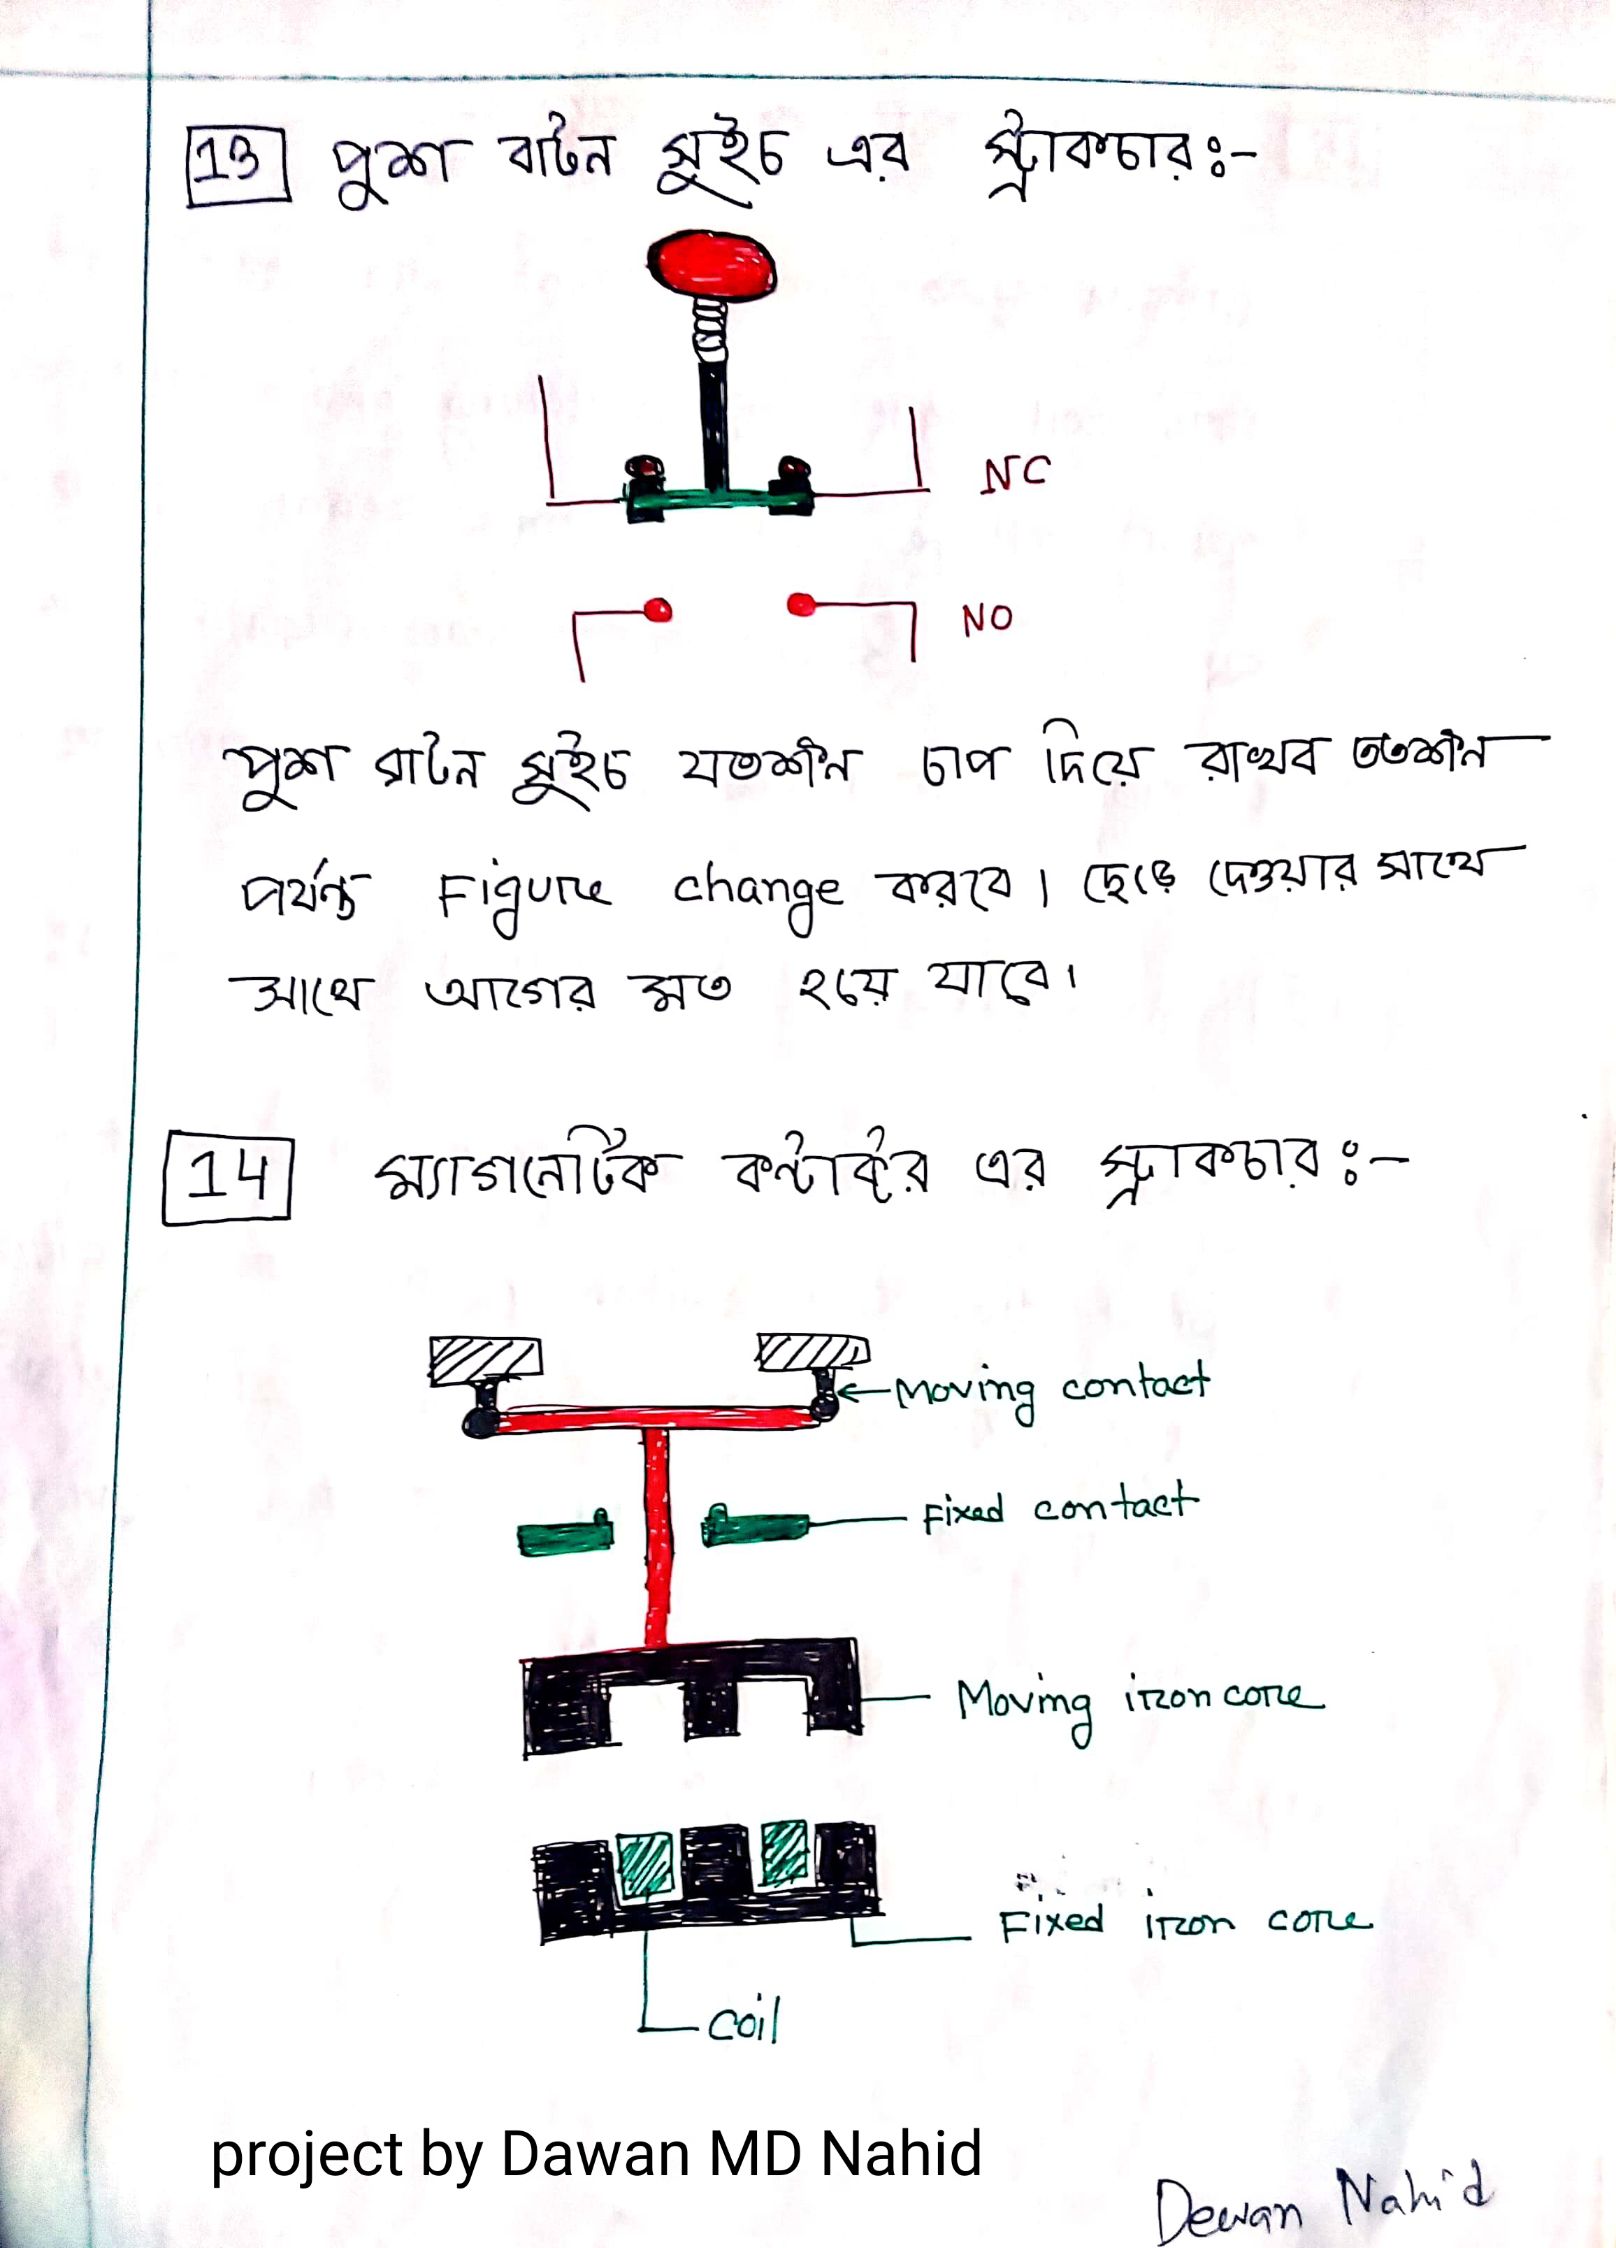 13 পুশ বাটন সুইচ এর স্ট্রাকচার:-
NC
NO
পুশ বাটন সুইচ যতক্ষন চাপ দিয়ে রাখব ততক্ষন
পর্যন্ত Figure change করবে। ছেড়ে দেওয়ার সাথে
সাথে আগের মত হয়ে যাবে।
14 ম্যাগনেটিক কন্টাক্টর এর স্ট্রাকচার:-
Moving contact
Fixed contact
Moving iron core
Fixed iron core
coil
project by Dawan MD Nahid
Dewan Nahid